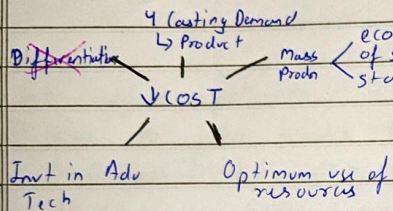 4 Casting Demand
↳ Product
Differentiation
Mass
Prodn
eco
of s
sta
↓ COST
Invt in Adv
Tech
Optimum use of
resources